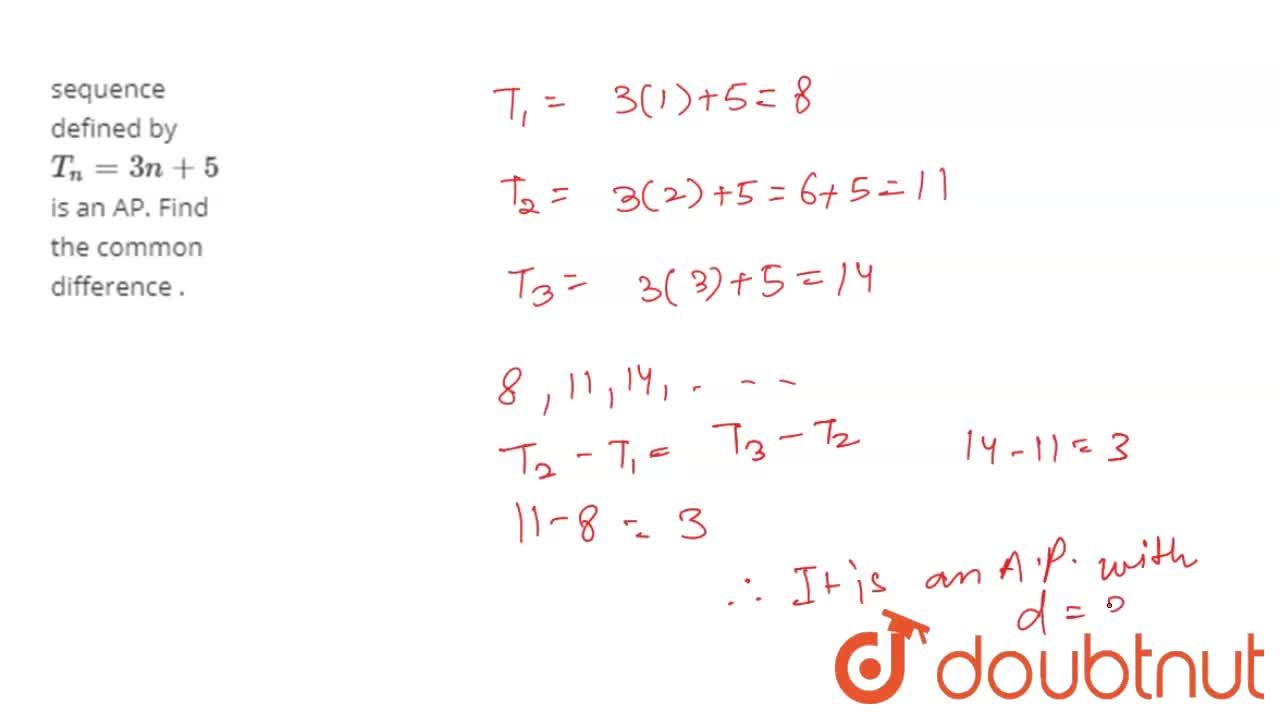 sequence
defined by
Tₙ = 3n + 5
is an AP. Find
the common
difference .
T₁ = 3(1)+5 = 8
T₂ = 3(2)+5 = 6+5 = 11
T₃ = 3(3)+5 = 14
8, 11, 14, - - -
T₂ - T₁ = T₃ - T₂
14 - 11 = 3
11 - 8 = 3
∴ It is an A.P. with
d =
doubtnut